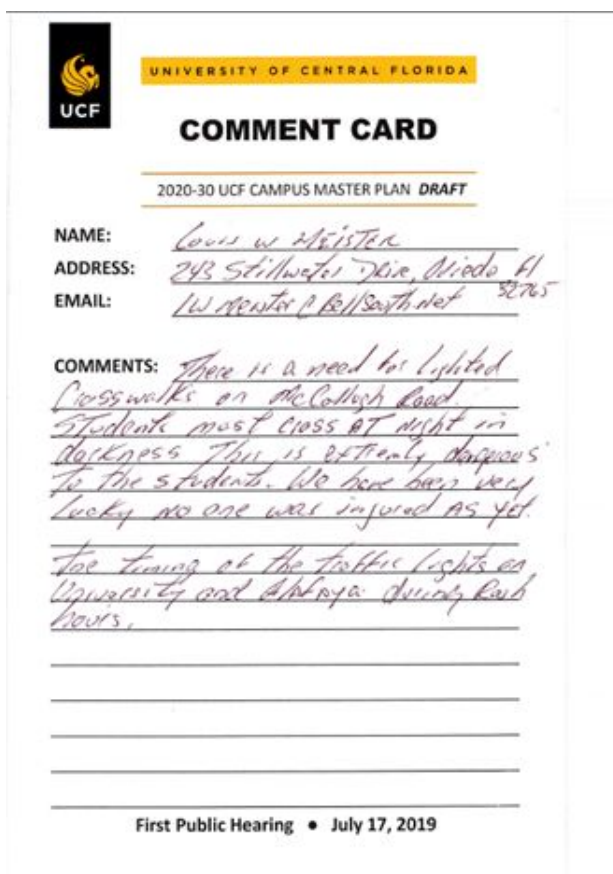 UCF
UNIVERSITY OF CENTRAL FLORIDA
COMMENT CARD
2020-30 UCF CAMPUS MASTER PLAN DRAFT
NAME: Louis W MEISTER
ADDRESS: 243 Stillwater Drive, Oviedo Fl
32765
EMAIL:
COMMENTS: There is a need for lighted
Crosswalks on McCollugh Road.
Students must cross AT night in
darkness This is
to the students. We have been very
lucky no one was injured AS yet.
The timing of the traffic lights on
University and Alafaya during Rush
hours.
First Public Hearing • July 17, 2019